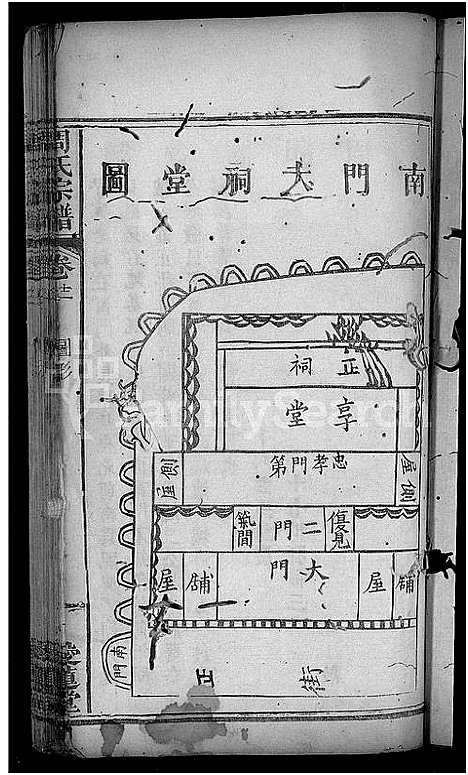 南門大祠堂圖
周氏宗譜
卷之
圖形
正祠
享堂
忠孝門第
側屋
側屋
優見
二門
氣間
大門
舖屋
舖屋
南門
正街
FamilySearch